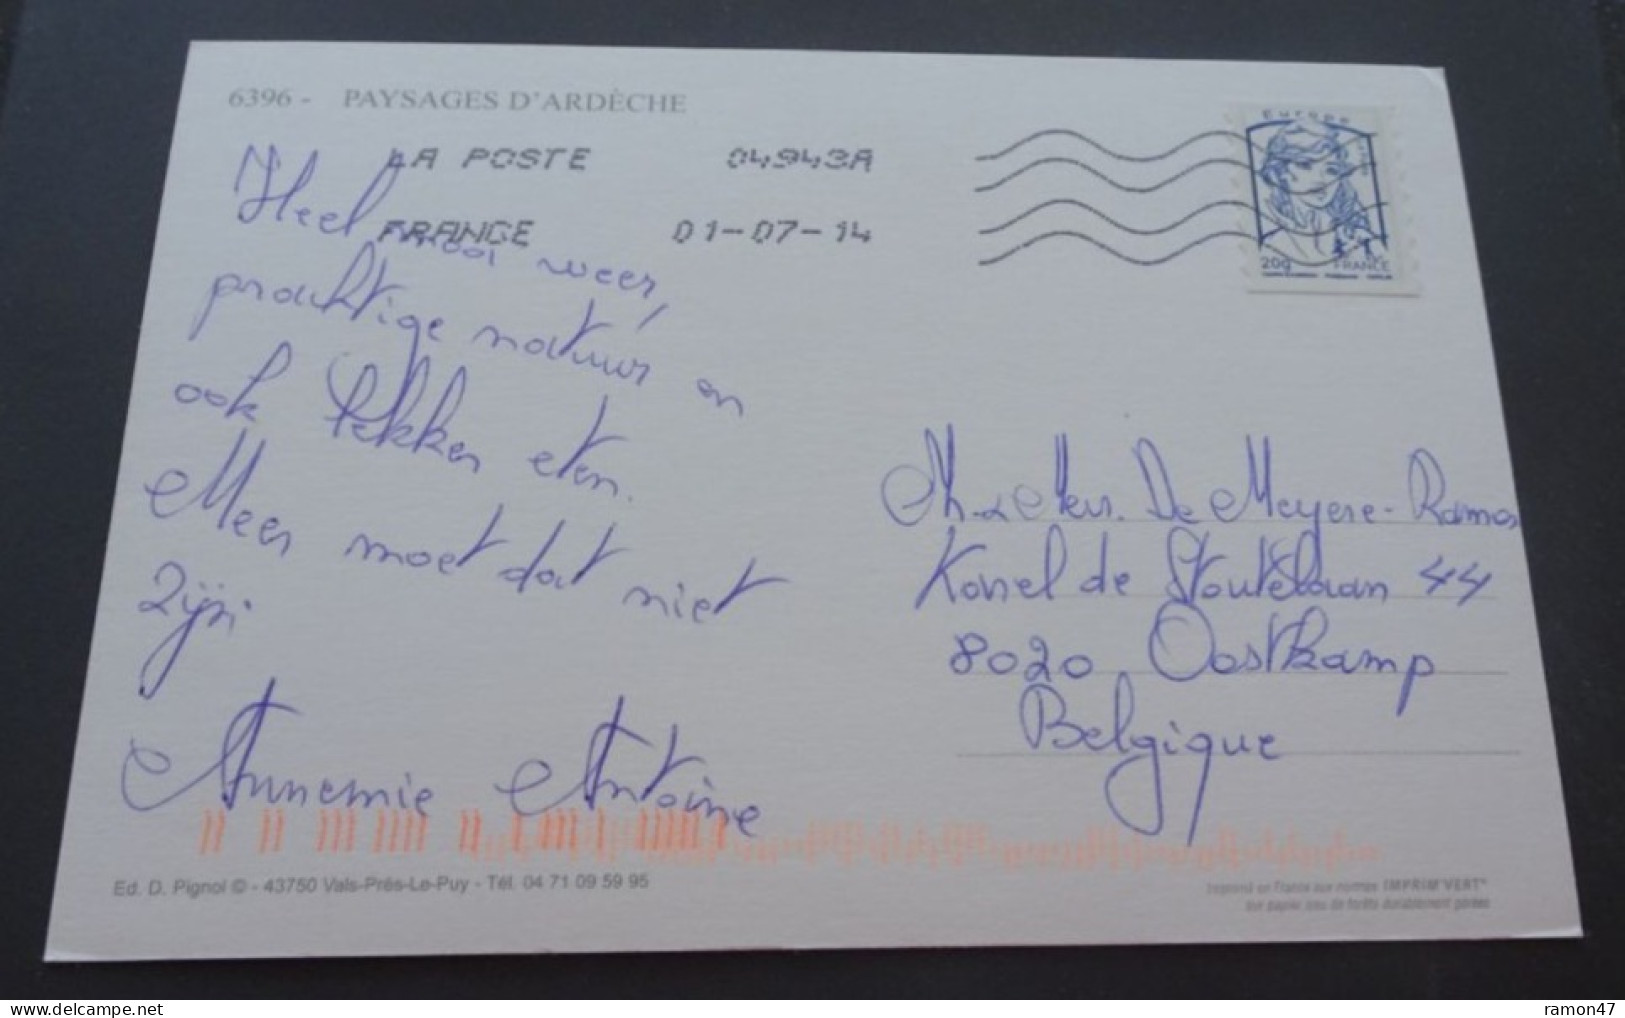 6396 - PAYSAGES D'ARDÈCHE
LA POSTE 04943A
FRANCE 01-07-14
Europe
20g FRANCE
Heel mooi weer,
prachtige natuur en
ook lekker eten.
Meer moet dat niet
zijn.
Annemie Antoine
Mh. & Mevr. De Meyere - Ramon
Karel de Stoutelaan 44
8020 Oostkamp
Belgique
Ed. D. Pignol © - 43750 Vals-Près-Le-Puy - Tél. 04 71 09 59 95
Imprimé en France aux normes IMPRIM'VERT®
sur papier issu de forêts durablement gérées
ramon47